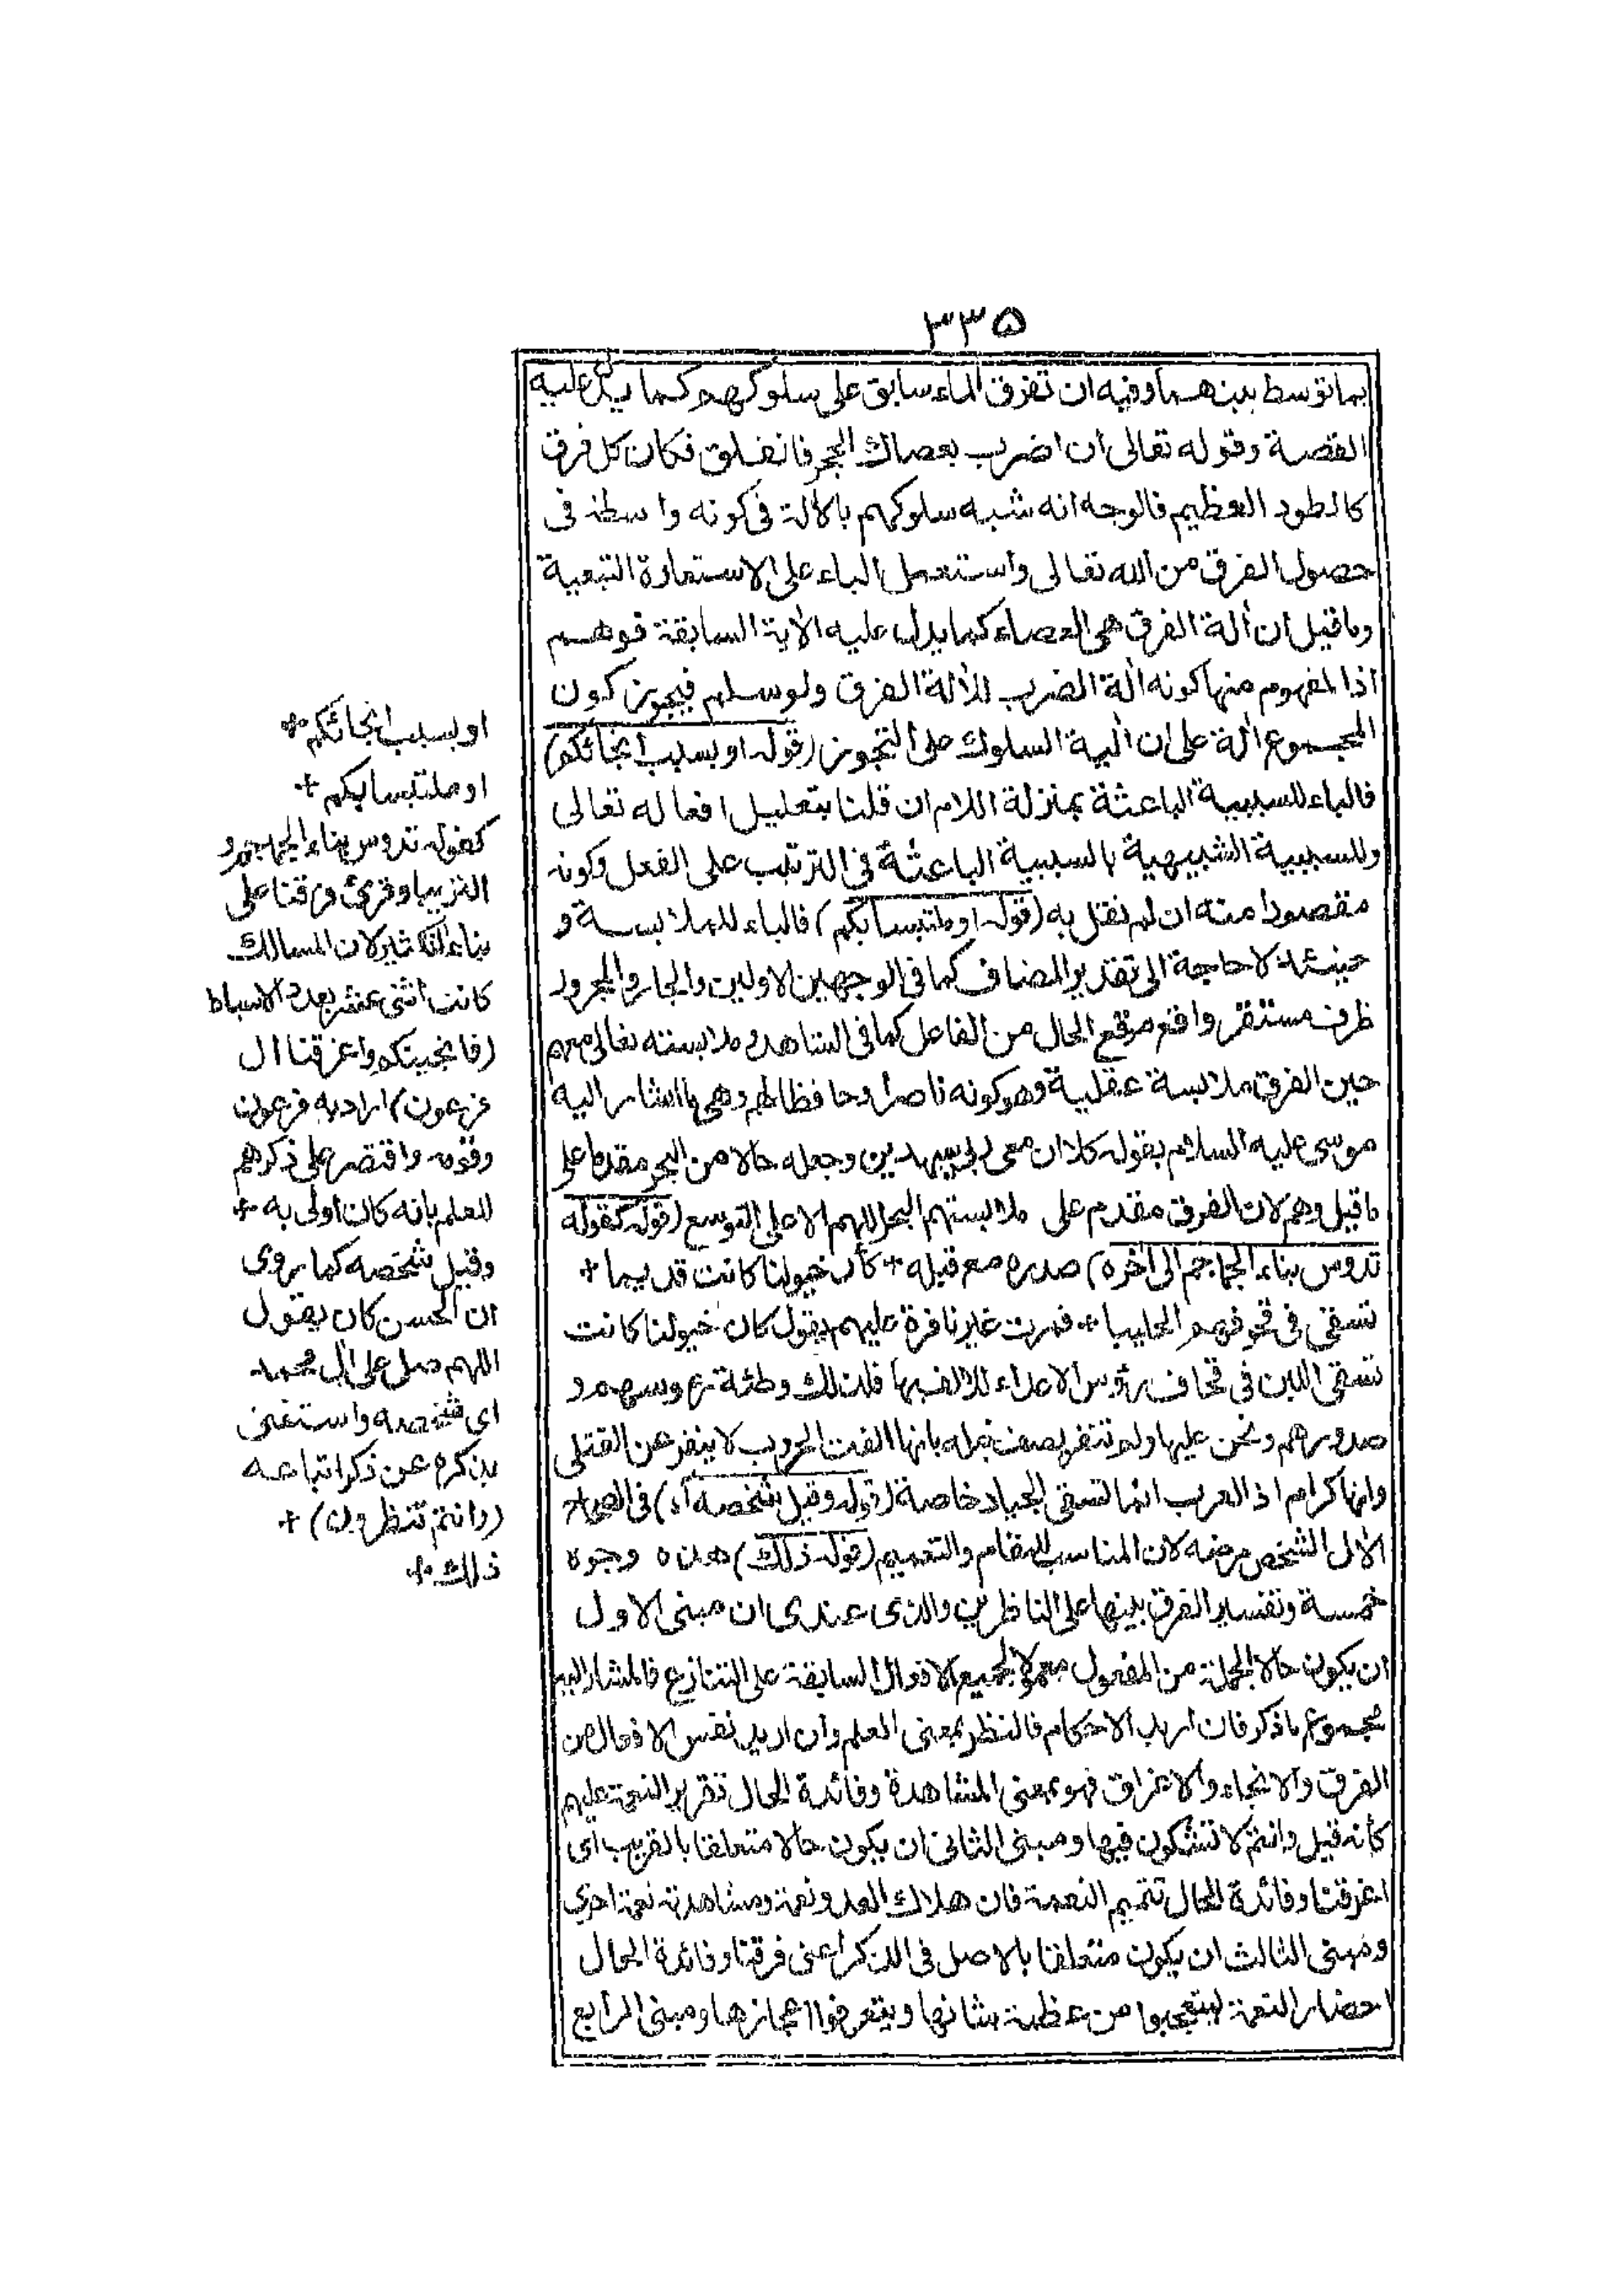 ٣٣٥
بما توسط بينهما وفيه ان تفرق الماء سابق على سلوكهم كما يدل عليه
القصة وقوله تعالى ان اضرب بعصاك البحر فانفلق فكان كل فرق
كالطود العظيم فالوجه انه شبه سلوكهم بالألة فى كونه واسطة فى
حصول الفرق من الله تعالى واستعمل الباء على الاستعارة التبعية
وما قيل ان ألة الفرق هى العصاء كما يدل عليه الأية السابقة فوهم
اذ المفهوم منها كونه ألة الضرب لا ألة الفرق ولو سلم فيجوز كون
المجموع ألة على ان ألية السلوك على التجوز (قوله او بسبب انجائكم)
فالباء للسببية الباعثة بمنزلة اللام ان قلنا بتعليل افعاله تعالى
وللسببية الشبيهة بالسببية الباعثة فى الترتب على الفعل وكونه
مقصودا منه ان لم نقل به (قوله او ملتبسا بكم) فالباء للملابسة و
حينئذ لا حاجة الى تقدير المضاف كما فى الوجهين الاولين والجار والمجرور
ظرف مستقر واقع موقع الحال من الفاعل كما فى الشاهد وملابسته تعالى معهم
حين الفرق ملابسة عقلية وهو كونه ناصرا وحافظا لهم وهى ما اشار اليه
موسى عليه السلام بقوله كلا ان معى ربى سيهدين وجعله حالا من البحر مقدما على
ما قيل وهم لان الفرق مقدم على ملابستهم البحر اللهم الا على التوسع (قوله كقوله
تدوس بناء الجماجم الى أخره) صدره مع قبله + كأن خيولنا كانت قديما +
تسقى فى قحوفهم الحليبا + فمرت غير نافرة عليهم يقول كان خيولنا كانت
تسقى اللبن فى قحاف رؤس الاعداء للالف بها فلذلك وطئة رءوسهم و
صدورهم ونحن عليها ولم تتنفر يصف خيله بانها الفت الحروب لا ينفر عن القتلى
وانها كرام اذ العرب انما تسقى الجياد خاصة (قوله وقيل شخصه أه) فى الصحاح
الأل الشخص مرضه لان المناسب للمقام والتعميم (قوله ذلك) هذه وجوه
خمسة وتفسير الفرق بينها على الناظرين والذى عندى ان مبنى الاول
ان يكون حالا لجملة من المفعول معمولا لجميع الافعال السابقة على التنازع فالمشار اليه
مجموع ما ذكر فان اريد الاحكام فالنظر بمعنى العلم وان اريد نفس الافعال من
الفرق والانجاء والاغراق فهو بمعنى المشاهدة وفائدة الحال تقرير النعمة عليهم
كأنه قيل وانتم لا تشكون فيها ومبنى الثانى ان يكون حالا متعلقا بالقريب اى
اغرقنا وفائدة الحال تتميم النعمة فان هلاك العدو نعمة ومشاهدته نعمة اخرى
ومبنى الثالث ان يكون متعلقا بالاصل فى الذكر اعنى فرقنا وفائدة الحال
احضار النعمة ليتعجبوا من عظمة شانها ويتعرفوا اعجازها ومبنى الرابع
او بسبب انجائكم +
او ملتبسا بكم +
كقوله تدوس بناء الجماجم و
التريبا وقرئ فرقنا على
بناء التكثير لان المسالك
كانت اثنى عشر بعدد الاسباط
(فانجينكم واغرقنا ال
فرعون) اراد به فرعون
وقومه واقتصر على ذكرهم
للعلم بانه كان اولى به +
وقيل شخصه كما روى
ان الحسن كان يقول
اللهم صل على أل محمد
اى شخصه واستغنى
بذكره عن ذكر اتباعه
(وانتم تنظرون) +
ذلك +